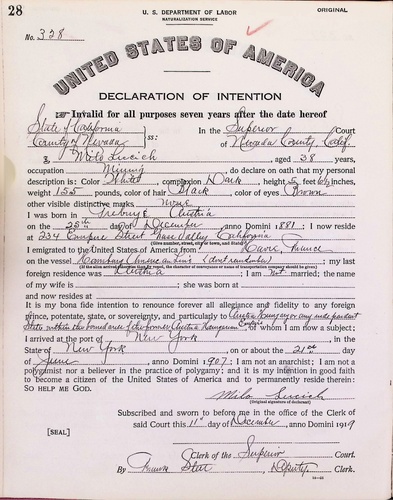 28
U. S. DEPARTMENT OF LABOR
NATURALIZATION SERVICE
ORIGINAL
No. 338
UNITED STATES OF AMERICA
DECLARATION OF INTENTION
Invalid for all purposes seven years after the date hereof
State of California
County of Nevada ss: In the Superior Court of Nevada County, Calif.
I, Milo Lucich, aged 38 years,
occupation Mining, do declare on oath that my personal
description is: Color White, complexion Dark, height 5 feet 6½ inches,
weight 155 pounds, color of hair Black, color of eyes Brown
other visible distinctive marks None
I was born in Austria
on the 25th day of December, anno Domini 1881; I now reside
at 234 Empire Street Grass Valley, California
(Give number, street, city or town, and State.)
I emigrated to the United States of America from Havre, France
on the vessel Hamburg American Line; my last
(If the alien arrived otherwise than by vessel, the character of conveyance or name of transportation company should be given.)
foreign residence was Austria; I am not married; the name
of my wife is; she was born at
and now resides at
It is my bona fide intention to renounce forever all allegiance and fidelity to any foreign
prince, potentate, state, or sovereignty, and particularly to Austria Hungary or any independent
State within the bounds of the former Austria Hungarian, of whom I am now a subject;
I arrived at the port of New York, in the
State of New York, on or about the 21st day
of June, anno Domini 1907; I am not an anarchist; I am not a
polygamist nor a believer in the practice of polygamy; and it is my intention in good faith
to become a citizen of the United States of America and to permanently reside therein:
SO HELP ME GOD.
Milo Lucich
(Original signature of declarant)
Subscribed and sworn to before me in the office of the Clerk of
said Court this 11th day of December, anno Domini 1919
[SEAL]
Clerk of the Superior Court.
By Deputy Clerk.